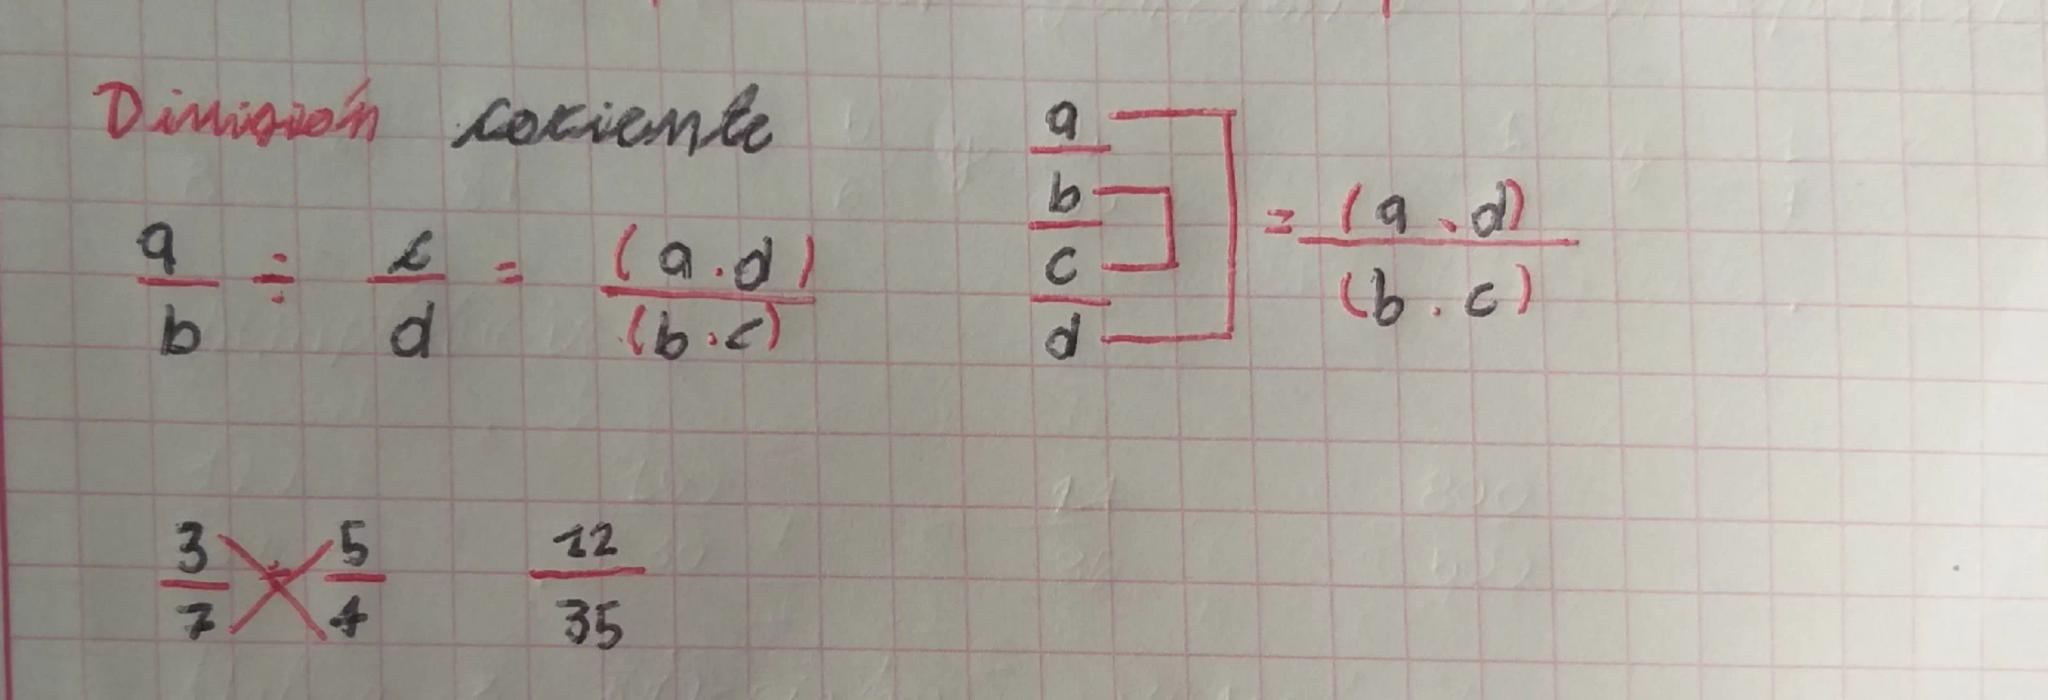 División cociente
a/b ÷ c/d = (a . d)/(b . c)
a/b/c/d = (a . d)/(b . c)
3/7 ÷ 5/4 12/35